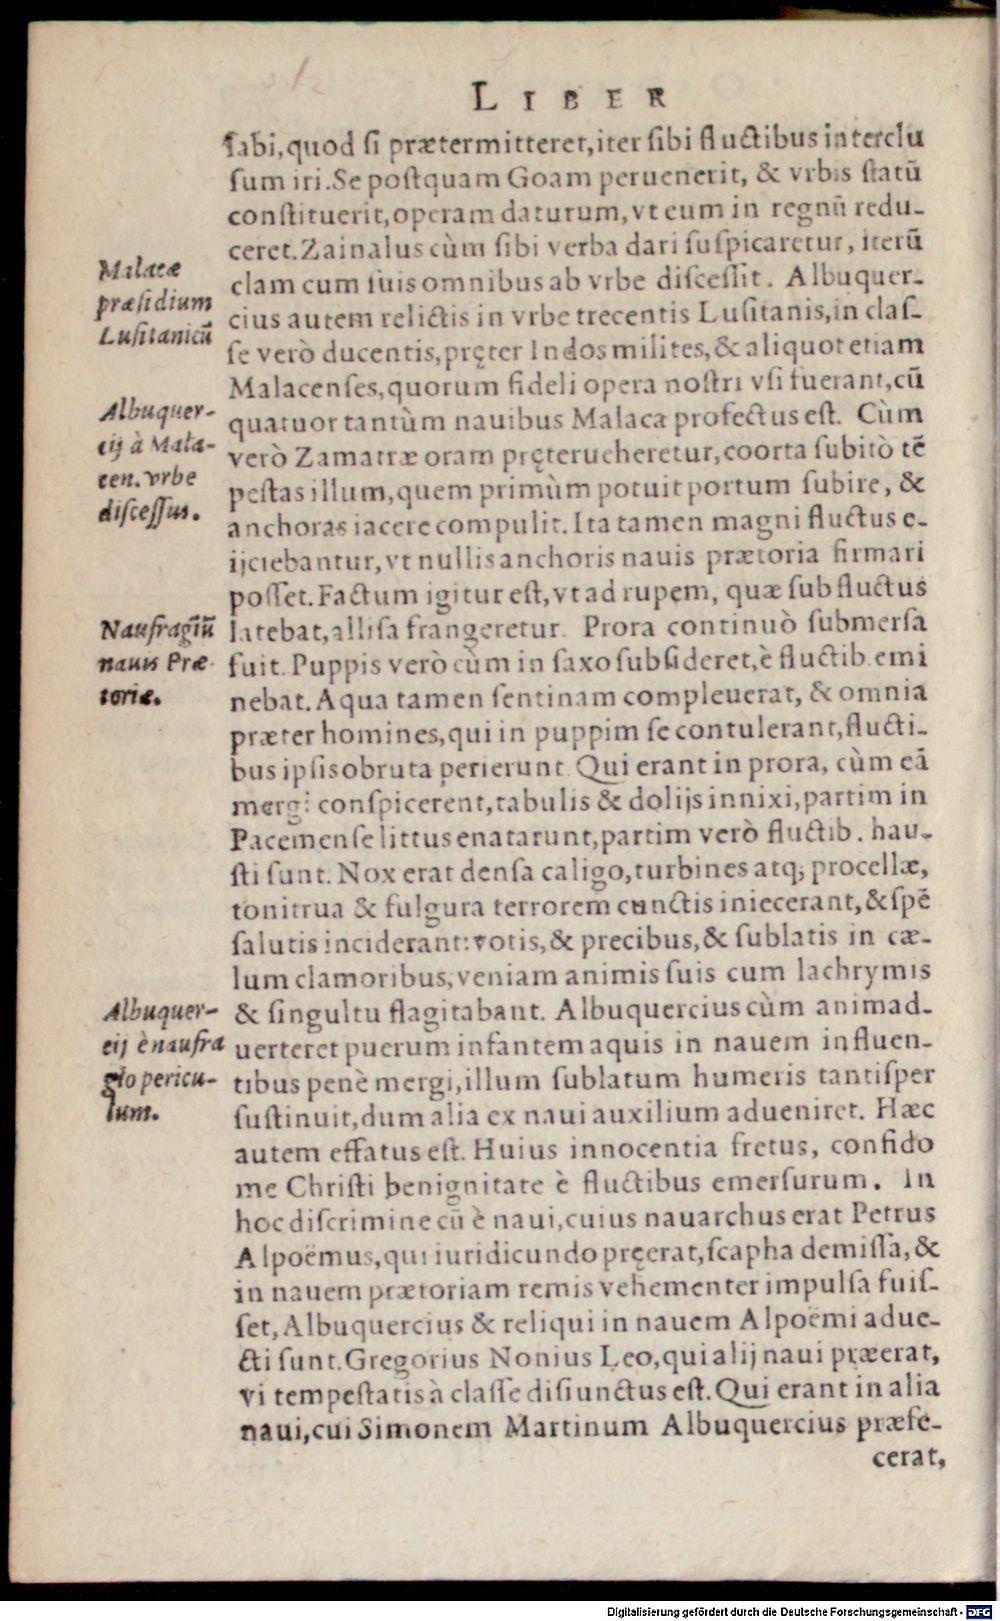 LIBER
ſabi,quod ſi prætermitteret,iter ſibi fluctibus interclu
ſum iri.Se poſtquam Goam peruenerit, & vrbis ſtatū
conſtituerit,operam daturum,vt eum in regnū redu-
ceret.Zainalus cùm ſibi verba dari ſuſpicaretur, iterū
clam cum ſuis omnibus ab vrbe diſceſſit. Albuquer-
cius autem relictis in vrbe trecentis Luſitanis,in claſ-
ſe verò ducentis,pręter Indos milites,& aliquot etiam
Malacenſes,quorum fideli opera noſtri vſi fuerant,cū
quatuor tantùm nauibus Malaca profectus eſt. Cùm
verò Zamatræ oram pręterueheretur,coorta ſubitò tē
peſtas illum,quem primùm potuit portum ſubire, &
anchoras iacere compulit. Ita tamen magni fluctus e-
ijciebantur,vt nullis anchoris nauis prætoria firmari
poſſet.Factum igitur eſt,vt ad rupem, quæ ſub fluctus
latebat,alliſa frangeretur. Prora continuò ſubmerſa
fuit. Puppis verò cùm in ſaxo ſubſideret,è fluctib.emi
nebat. Aqua tamen ſentinam compleuerat, & omnia
præter homines,qui in puppim ſe contulerant,flucti-
bus ipſis obruta perierunt. Qui erant in prora, cùm eā
mergi conſpicerent,tabulis & dolijs innixi,partim in
Pacemenſe littus enatarunt,partim verò fluctib. hau-
ſti ſunt. Nox erat denſa caligo,turbines atq; procellæ,
tonitrua & fulgura terrorem cunctis iniecerant,& ſpē
ſalutis inciderant:votis,& precibus,& ſublatis in cæ-
lum clamoribus,veniam animis ſuis cum lachrymis
& ſingultu flagitabant. Albuquercius cùm animad-
uerteret puerum infantem aquis in nauem influen-
tibus penè mergi,illum ſublatum humeris tantiſper
ſuſtinuit,dum alia ex naui auxilium adueniret. Hæc
autem effatus eſt. Huius innocentia fretus, confido
me Chriſti benignitate è fluctibus emerſurum. In
hoc diſcrimine cū è naui,cuius nauarchus erat Petrus
Alpoëmus,qui iuri dicundo pręerat,ſcapha demiſſa,&
in nauem prætoriam remis vehementer impulſa fuiſ-
ſet,Albuquercius & reliqui in nauem Alpoëmi adue-
cti ſunt.Gregorius Nonius Leo,qui alij naui præerat,
vi tempeſtatis à claſſe diſiunctus eſt. Qui erant in alia
naui,cui Simonem Martinum Albuquercius præfe-
cerat,
Malacæ
præſidium
Luſitanicū
Albuquer-
cij à Mala-
cen. vrbe
diſceſſus.
Naufragiū
nauis Præ-
toriæ.
Albuquer-
cij è naufra
gio pericu-
lum.
Digitalisierung gefördert durch die Deutsche Forschungsgemeinschaft - DFG